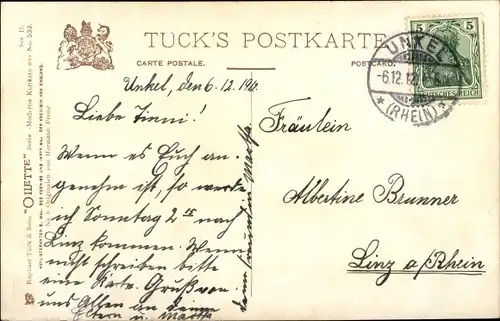 TUCK'S POSTKARTE
CARTE POSTALE.
POSTCARD.
Ser. II.
No. 533.
Raphael Tuck & Sons' "OILETTE" Serie
Nach Originalen von Hermann
5 5
DEUTSCHES REICH
UNKEL
-6.12.12
*(RHEIN)*
Unkel, den 6.12.19
Liebe Tinni!
Wenn es Euch an-
genehm ist, so werde
ich Sonntag 2 nach
Linz kommen. Wenn
nicht schreiben bitte
eine Karte. Gruß von
uns Allen an deine
Eltern u. Martha
Fräulein
Albertine Brunner
Linz a/Rhein